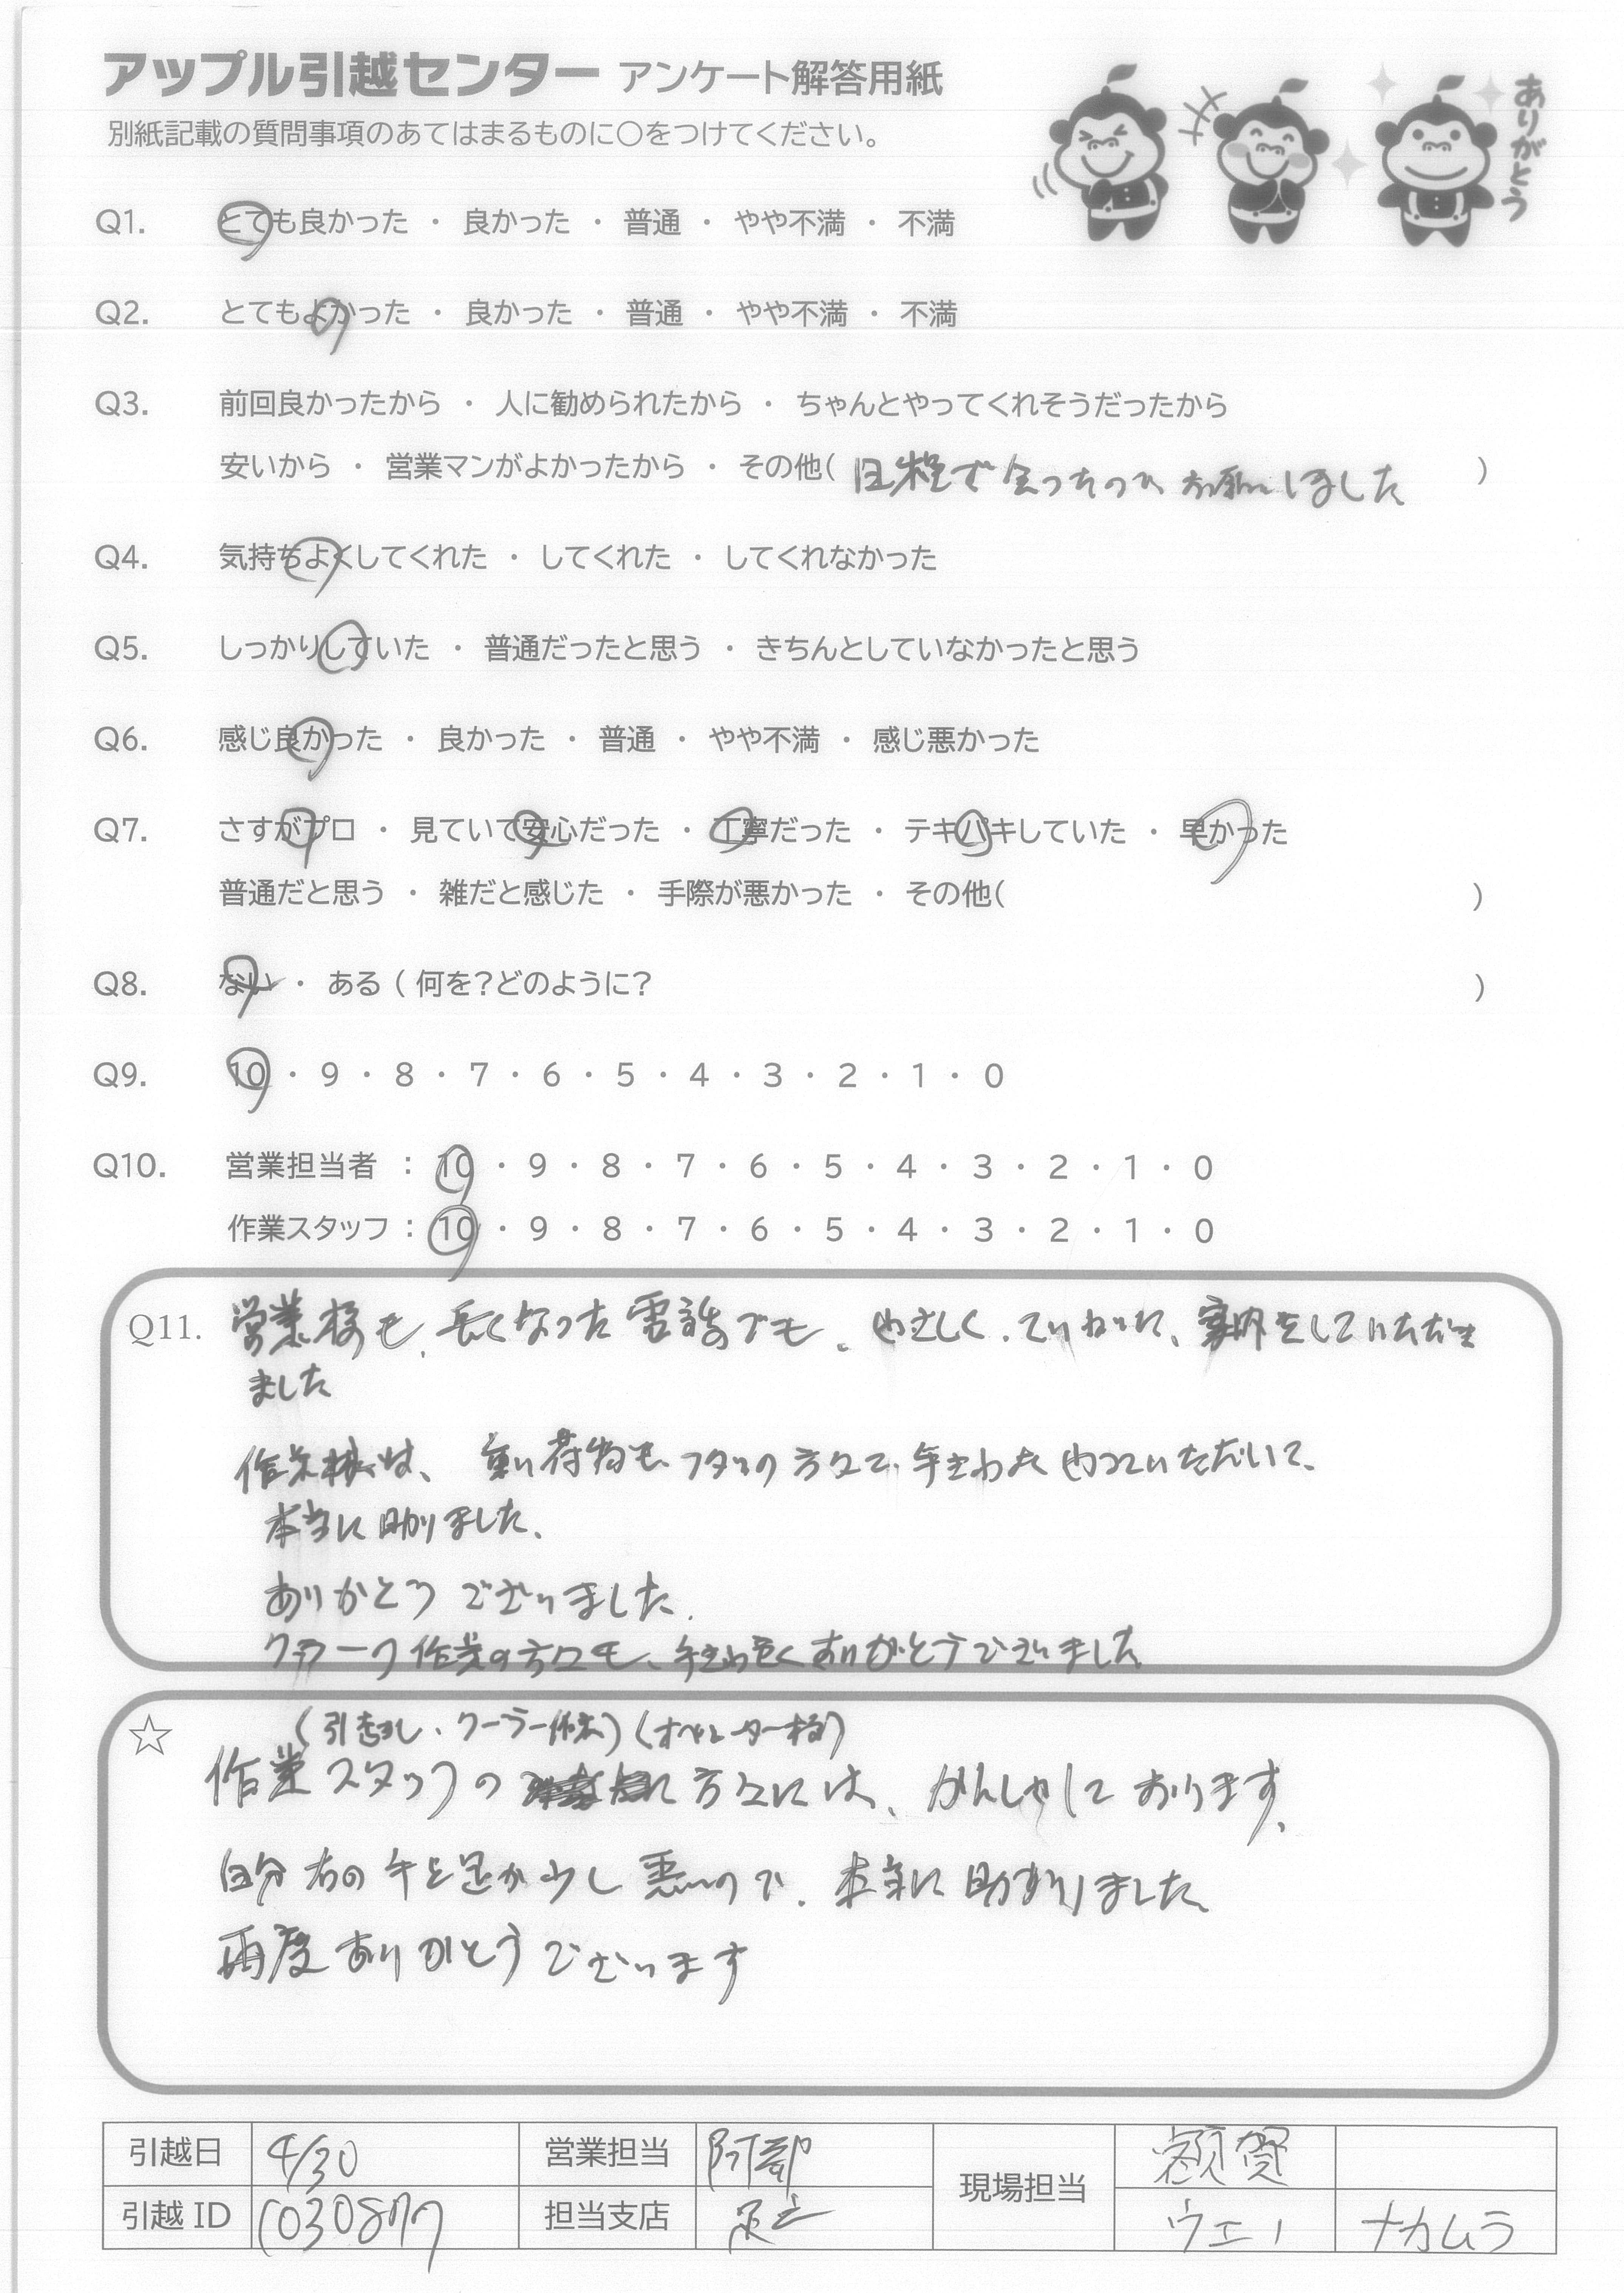 アップル引越センター アンケート解答用紙
別紙記載の質問事項のあてはまるものに○をつけてください。
ありがとう
Q1. とても良かった ・ 良かった ・ 普通 ・ やや不満 ・ 不満
Q2. とてもよかった ・ 良かった ・ 普通 ・ やや不満 ・ 不満
Q3. 前回良かったから ・ 人に勧められたから ・ ちゃんとやってくれそうだったから
安いから ・ 営業マンがよかったから ・ その他( 日程で会ったので お願いしました )
Q4. 気持ちよくしてくれた ・ してくれた ・ してくれなかった
Q5. しっかりしていた ・ 普通だったと思う ・ きちんとしていなかったと思う
Q6. 感じ良かった ・ 良かった ・ 普通 ・ やや不満 ・ 感じ悪かった
Q7. さすがプロ ・ 見ていて安心だった ・ 丁寧だった ・ テキパキしていた ・ 早かった
普通だと思う ・ 雑だと感じた ・ 手際が悪かった ・ その他( )
Q8. ない ・ ある ( 何を?どのように? )
Q9. 10 ・ 9 ・ 8 ・ 7 ・ 6 ・ 5 ・ 4 ・ 3 ・ 2 ・ 1 ・ 0
Q10. 営業担当者 : 10 ・ 9 ・ 8 ・ 7 ・ 6 ・ 5 ・ 4 ・ 3 ・ 2 ・ 1 ・ 0
作業スタッフ : 10 ・ 9 ・ 8 ・ 7 ・ 6 ・ 5 ・ 4 ・ 3 ・ 2 ・ 1 ・ 0
Q11. 営業様も、長くなった電話でも。やさしく、ていねいに、案内をしていただき
ました
作業様は、重い荷物も、スタッフの方々で、手ぎわよくやっていただいて、
本当に助かりました、
ありがとうございました。
クーラー作業の方々も、手ぎわ良くありがとうございました
☆ (引越し、クーラー作業)(オペレーター様)
作業スタッフの 方々には、かんしゃしております、
自分右の手と足が少し悪いので、本当に助かりました。
再度ありがとうございます
引越日 4/30 営業担当 阿部 現場担当 額賀
引越 ID 担当支店 足立 ウエノ ナカムラ